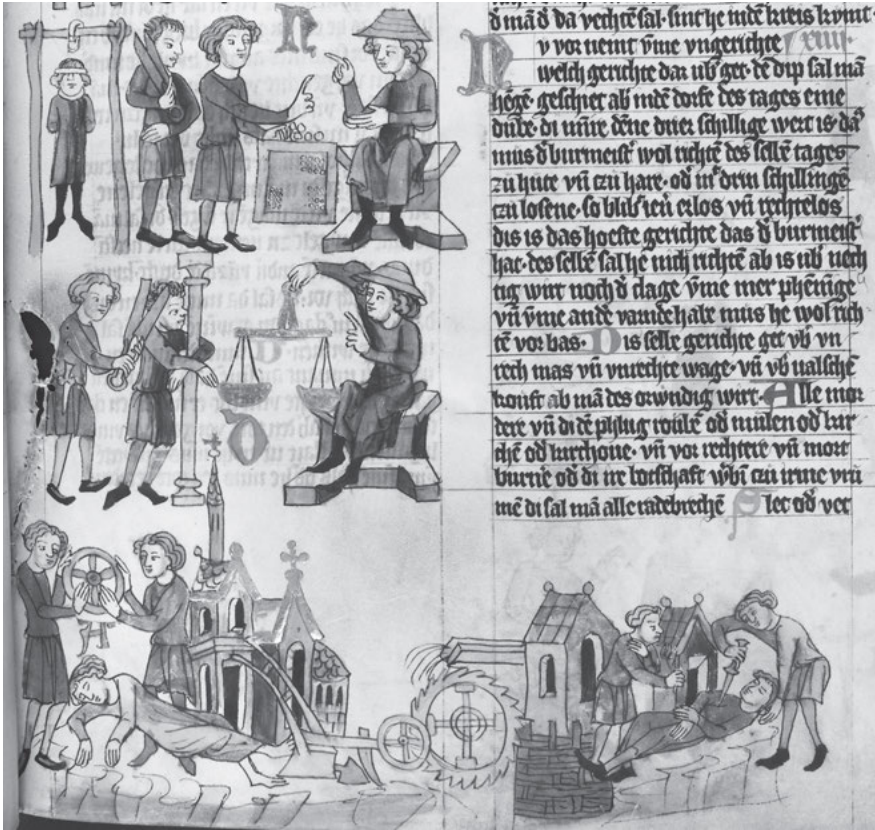 d̓ mā d̓ da vechtē sal · sint he īdē kreis kvmt ·
v vor nemt v̄me vngerichte xiii ·
N welch gerichte dar vb̓ get · dē dip sal mā
hēgē · geschiet ab indē dorfe des tages eine
dube · di mīre dēne drier schillige wert is · da
mus d̓ burmeist̓ wol richtē des selbē tages
zu hute vn̄ czu hare · od̓ in̓ drin schillingē
czu losene · so blib̓ ien̓ erlos vn̄ rechtelos
dis is das hoeste gerichte das d̓ burmeist̓
hat · des selbē sal he nich richtē ab is ub̓ nech
tig wirt noch d̓ clage v̄me mer phēnige
vn̄ v̄me andē varndehabe mus he wol rich
tē vor bas · Dis selbe gerichte get vb̓ vn
rech mas vn̄ vnrechte wage · vn̄ vb̓ valschē
kouff ab mā des orwindig wirt · Alle mor
dere vn̄ di dē phlug roubē od̓ mulen od̓ kir
chē od̓ kirchoue · vn̄ vor rechtere vn̄ mort
burn̄e od̓ di ire botschaft w̓bī czu irme vrū
mē di sal mā alle radebrechē Slec od̓ vec
N
D
A